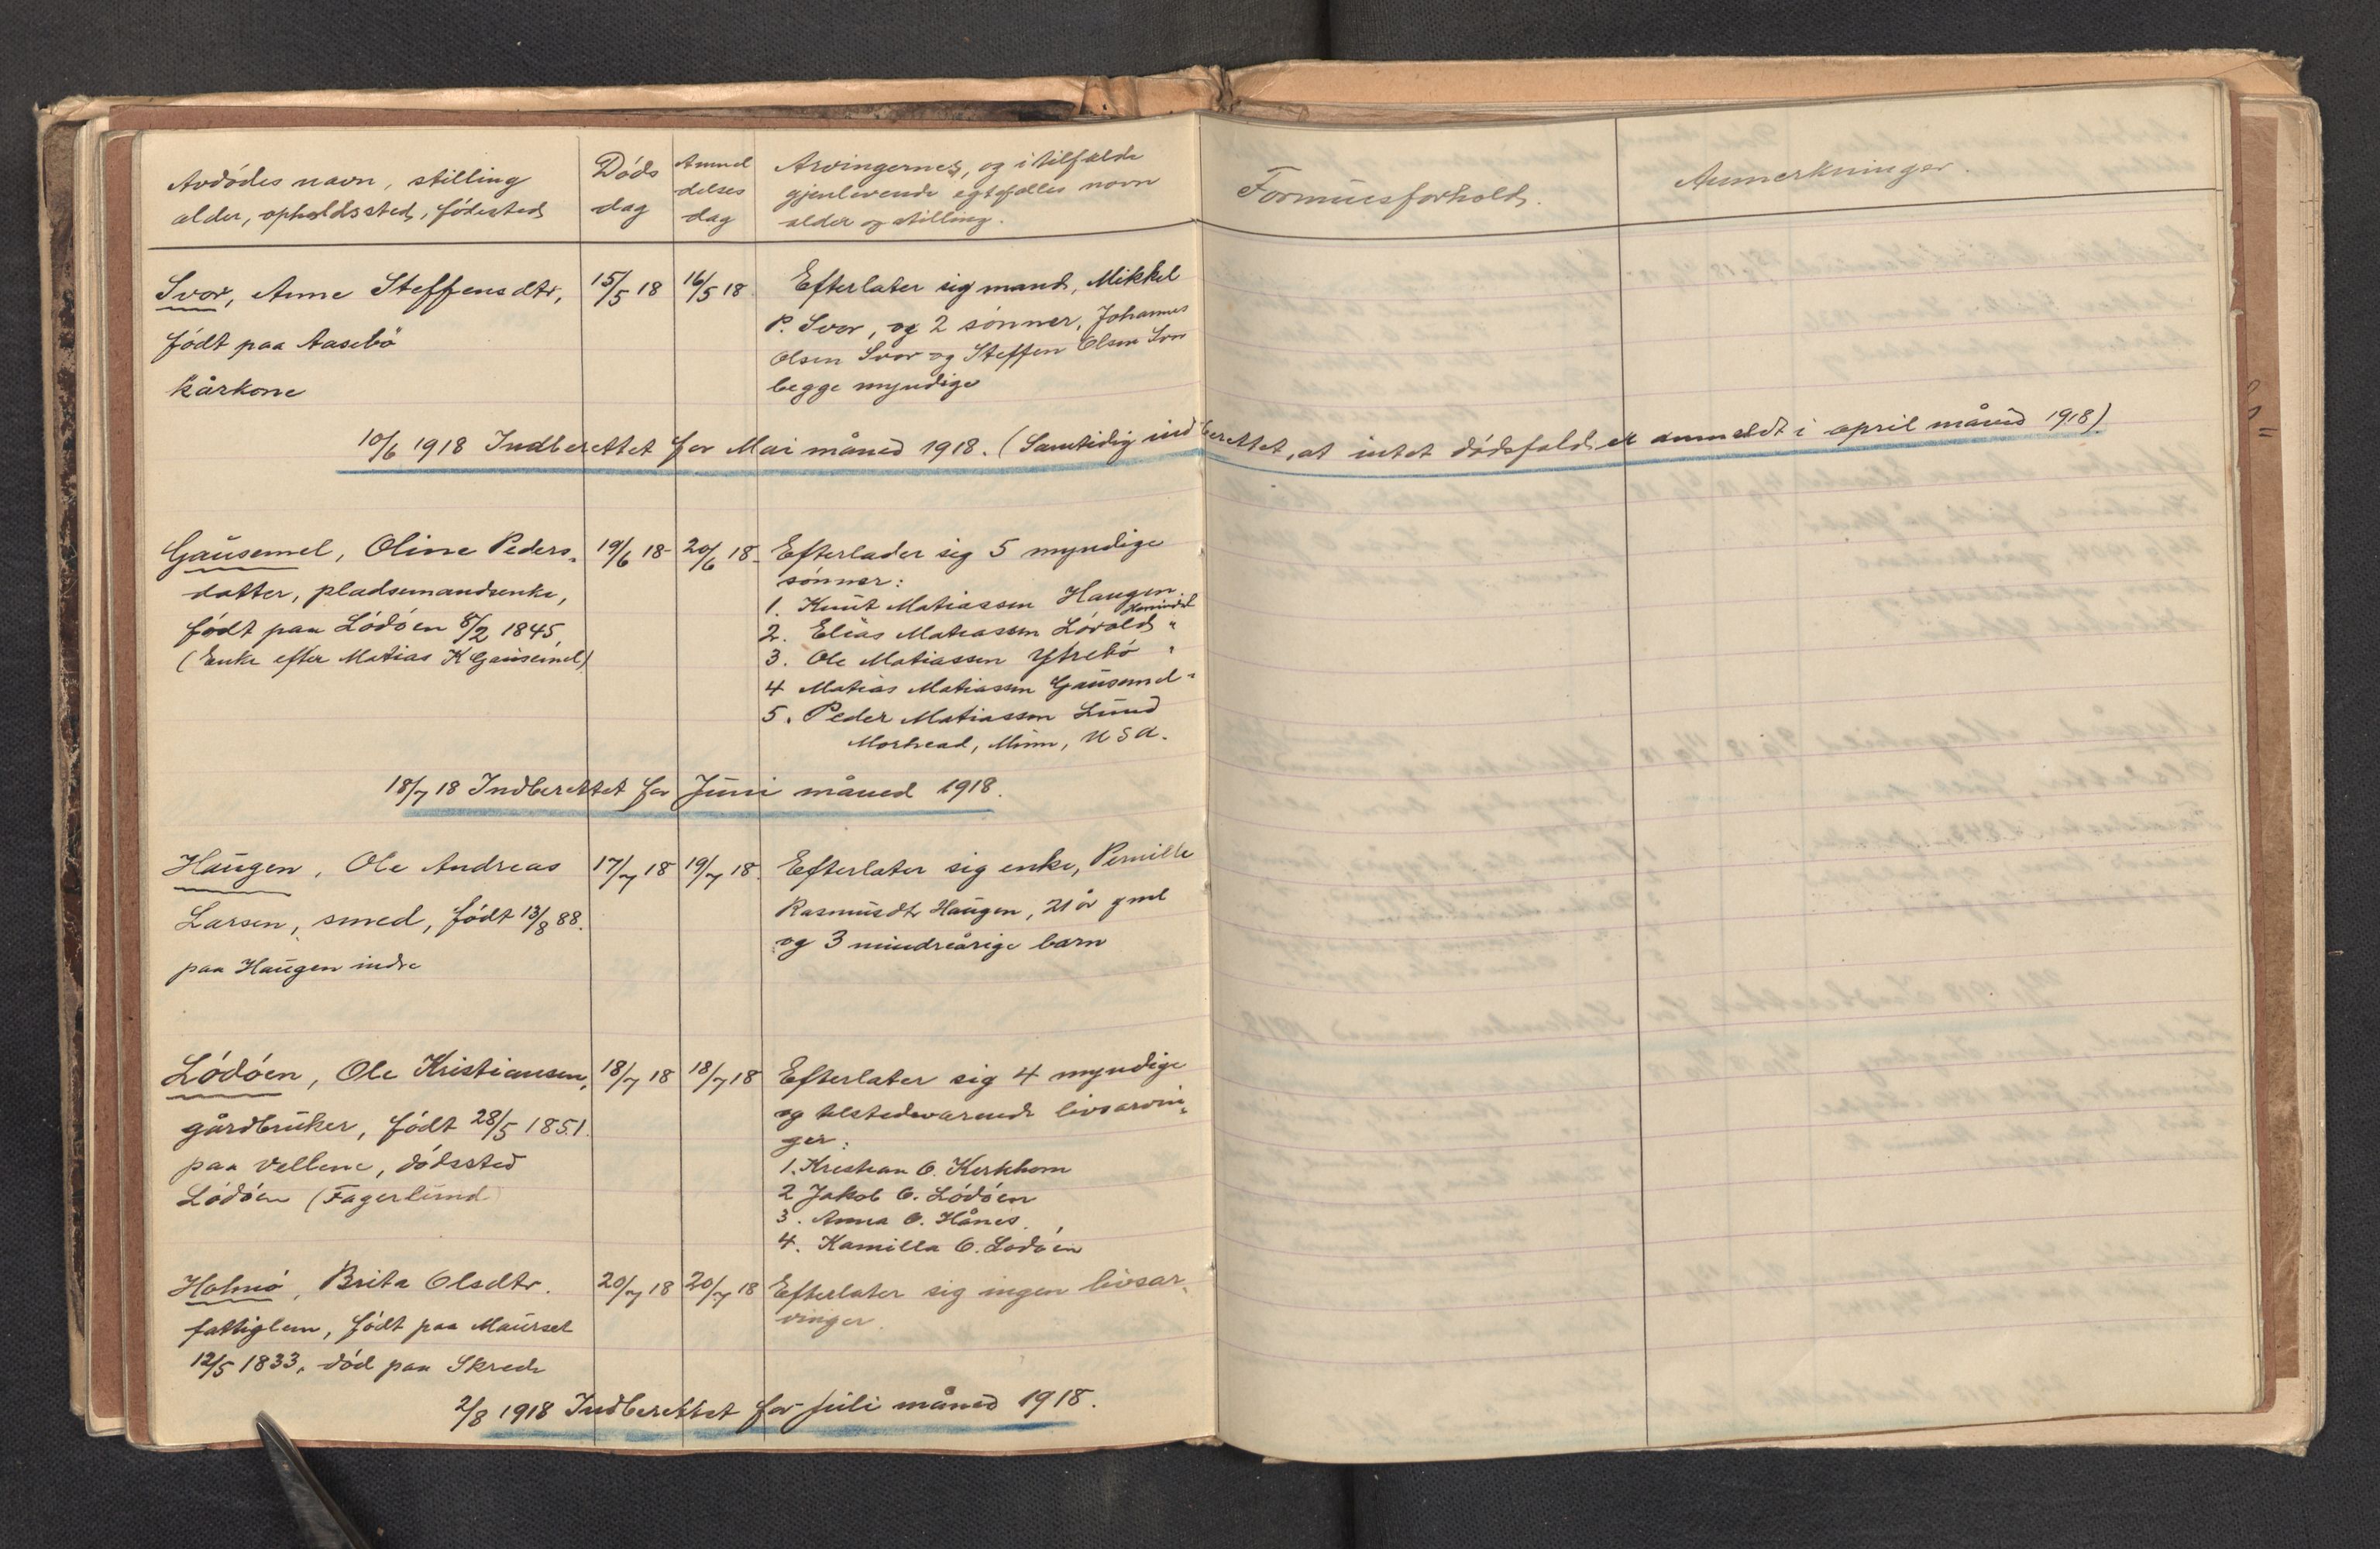 Avdódes navn, stilling
alder, opholdssted, fódested
Dóds
dag
Anmel
delses
dag
Arvingernes, og i tilfælde
gjenlevende egtefælles navn
alder og stilling.
Formuesforhold.
Anmerkninger.
Svor, Anne Steffensdtr,
fódt paa Aasebö
kårkone
15/5 18
16/5 18
Efterlater sig mand, Mikkel
P. Svor, og 2 sónner, Johannes
Olsen Svor og Steffen Olsen Svor
begge myndige
10/6 1918 Indberettet for Mai måned 1918. (Samtidig indberettet, at intet dódsfald er anmeldt i april måned 1918)
Gausemel, Oline Peders-
datter, pladsemandsenke,
fódt paa Lódóen 8/2 1845,
(Enke efter Matias K Gausemel)
19/6 18-
20/6 18-
Efterlader sig 5 myndige
sónner:
1. Knut Matiassen Haugen
Hornindal
2. Elias Matiassen Lóvold "
3. Ole Matiassen Ytrebó "
4 Matias Matiassen Gausemel "
5. Peder Matiassen Lund
Morhead, Minn, U S A.
18/7 18 Indberettet for Juni måned 1918.
Haugen, Ole Andreas
Larsen, smed, fódt 13/8 88.
paa Haugen indre
17/7 18
19/7 18.
Efterlater sig enke, Pernille
Rasmusdtr Haugen, 21 år gml
og 3 mindreårige barn
Lódóen, Ole Kristiansen,
gårdbruker, fódt 28/5 1851.
paa Vellene, dódssted
Lódóen (Fagerlund)
18/7 18
18/7 18
Efterlater sig 4 myndige
og tilstedeværende livsarvin-
ger:
1. Kristian O. Kirkhorn
2 Jakob O. Lódóen
3. Anna O. Hånes.
4. Kamilla O. Lodóen
Holmó, Brita Olsdtr.
fattiglem, fódt paa Maurset
12/5 1833, dód paa Skrede
20/7 18
20/7 18
Efterlater sig ingen livsar-
vinger.
2/8 1918 Indberettet for juli måned 1918.